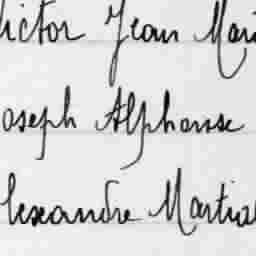 Victor Jean Mari
Joseph Alphonse
lexandre Martial